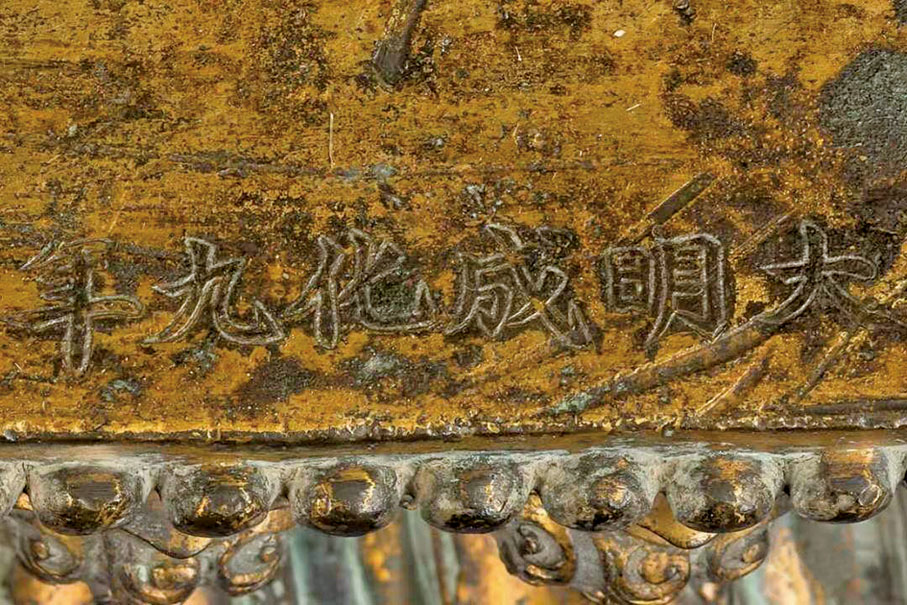 大明成化九年